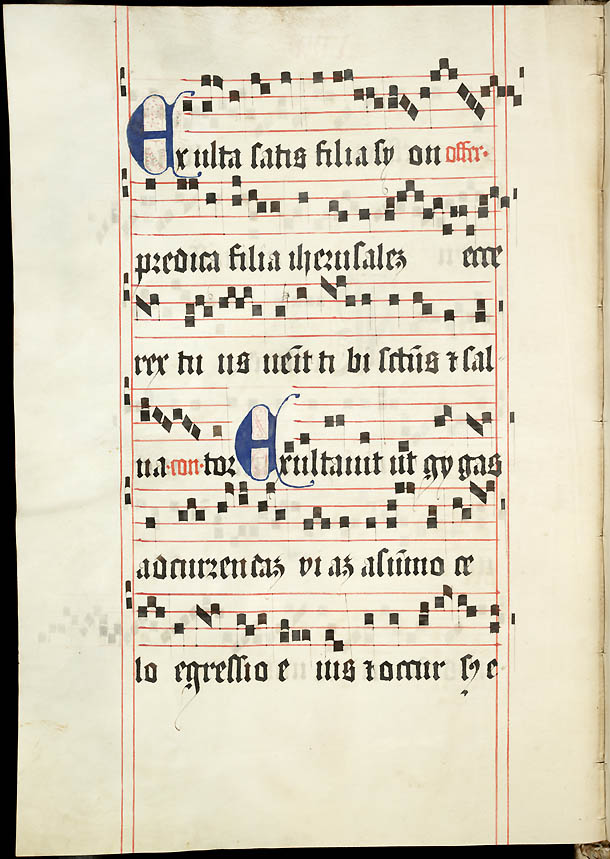 Exulta satis filia sy on offer·
predica filia iherusalez ecce
rex tu us ueīt ti bi sctūs ⁊ sal
ua·con·tor Exultauit ut gy gas
adcurrendaz vi az asūmo ce
lo egressio e ius ⁊ occur sy e